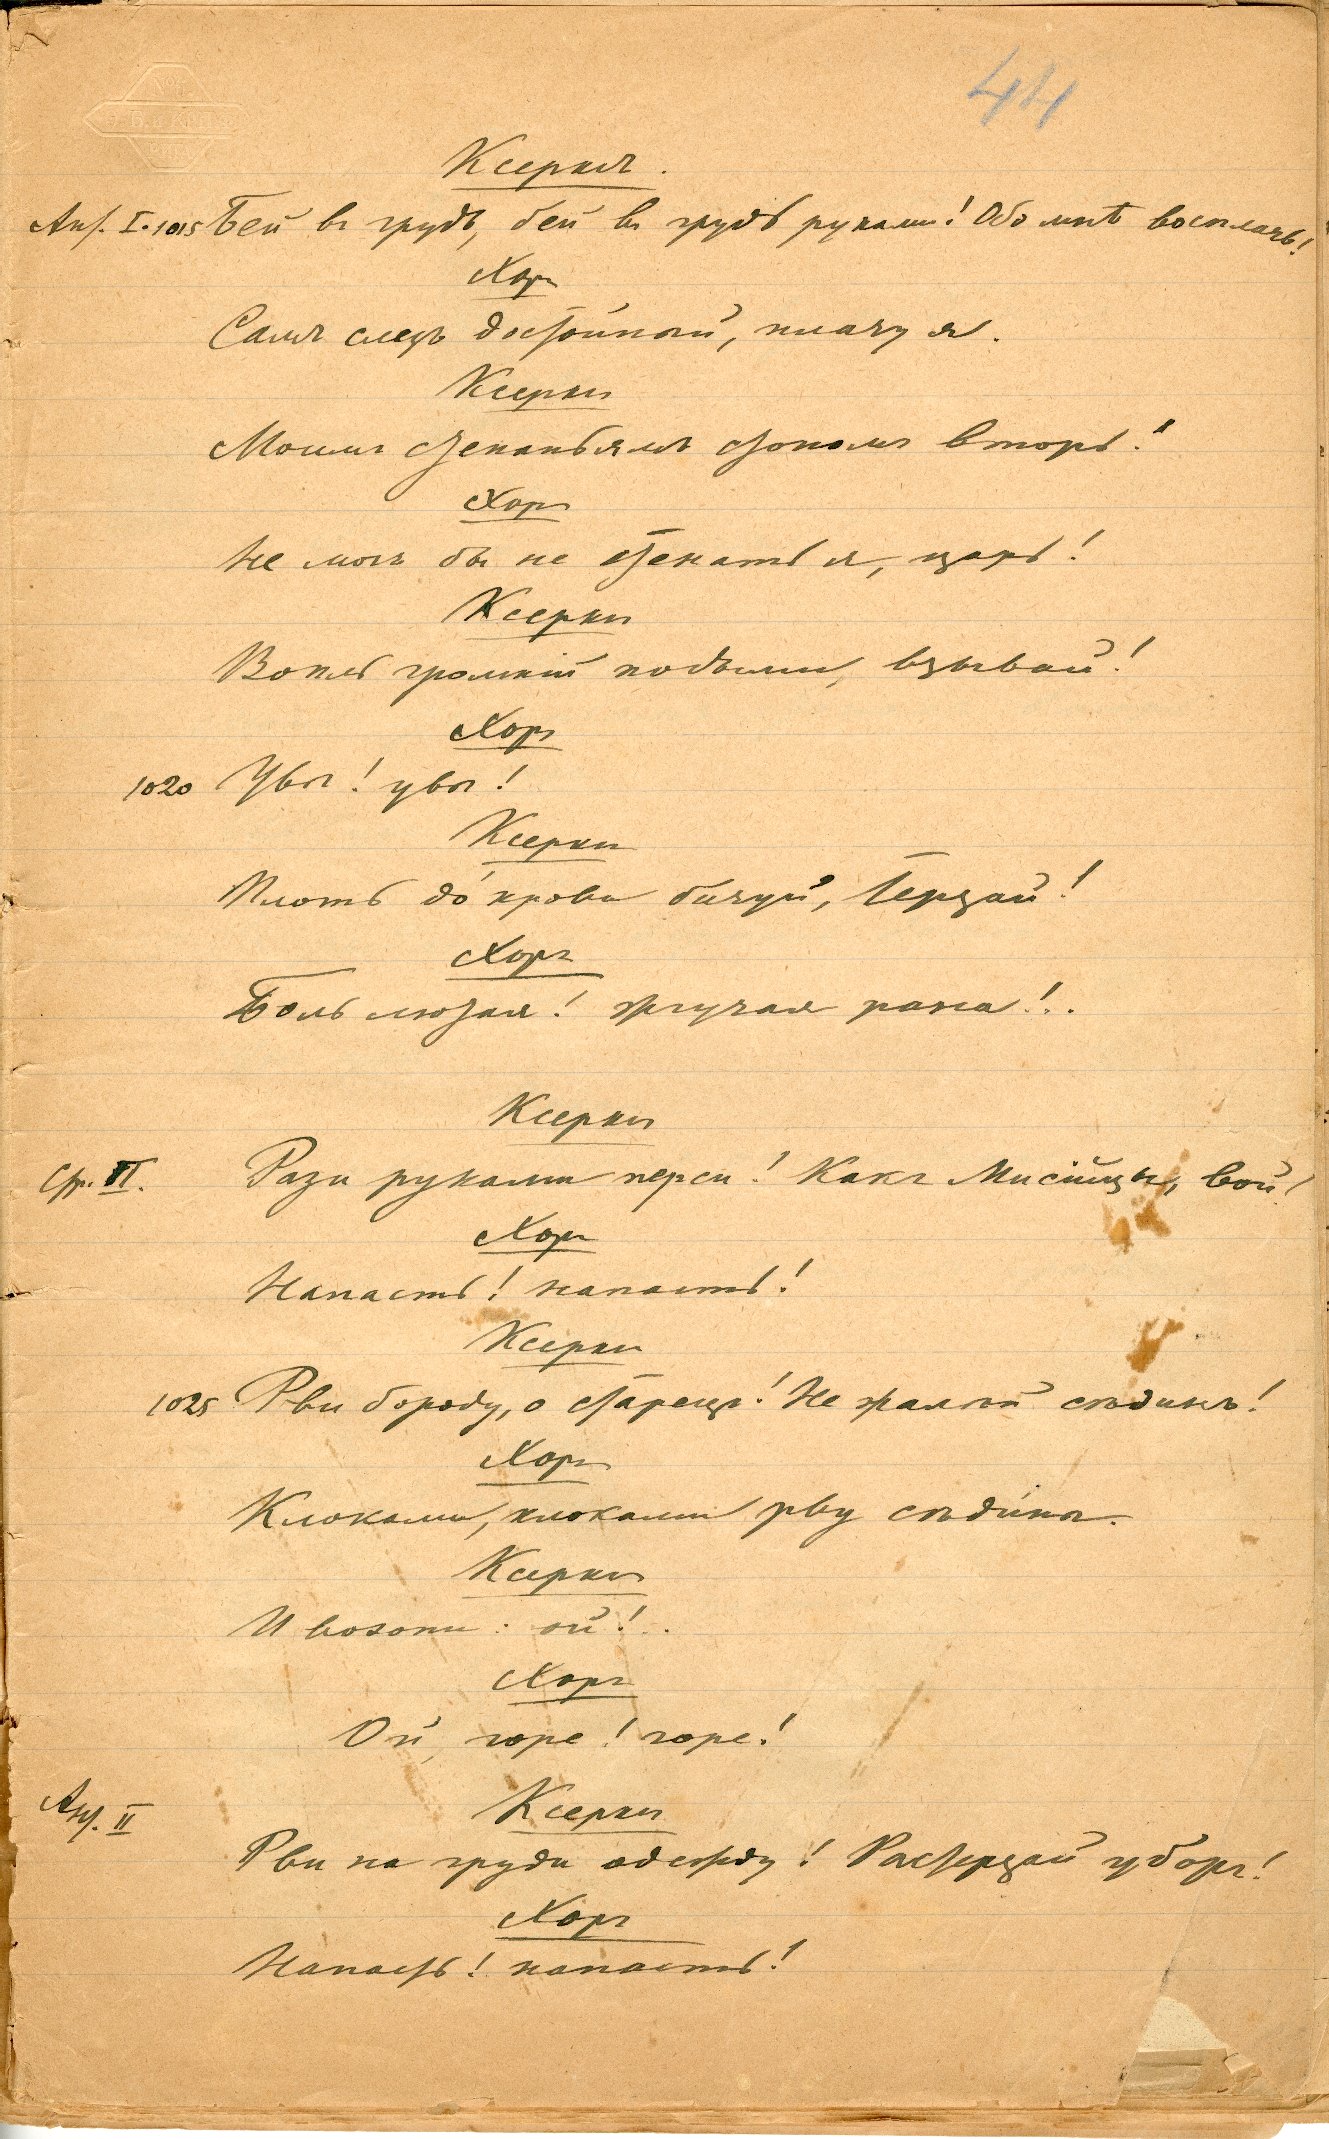 44
Ксерксъ.
Ант. I. 1015 Бей въ грудь, бей въ грудь руками! Обо мнѣ восплачь!
Хоръ
Самъ слезъ достойный, плачу я.
Ксерксъ
Моимъ стенаньямъ стономъ вторь!
Хоръ
Не мочь бы не стенать я, царь!
Ксерксъ
Вопль громкій подыми, взывай!
Хоръ
1020 Увы! увы!
Ксерксъ
Плоть до́ крови бичуй, терзай!
Хоръ
Боль лютая! жгучая рана!..
Ксерксъ
Стр. II. Рази руками перси! Какъ Мисійцы, вой!
Хоръ
Напасть! напасть!
Ксерксъ
1025 Рви бороду, о старецъ! Не жалѣй сѣдинъ!
Хоръ
Клоками, клоками рву сѣди́ны.
Ксерксъ
И возопи: ой!..
Хоръ
Ой, горе! горе!
Ант. II
Ксерксъ
Рви на груди одежду! Растерзай уборъ!
Хоръ
Напасть! напасть!